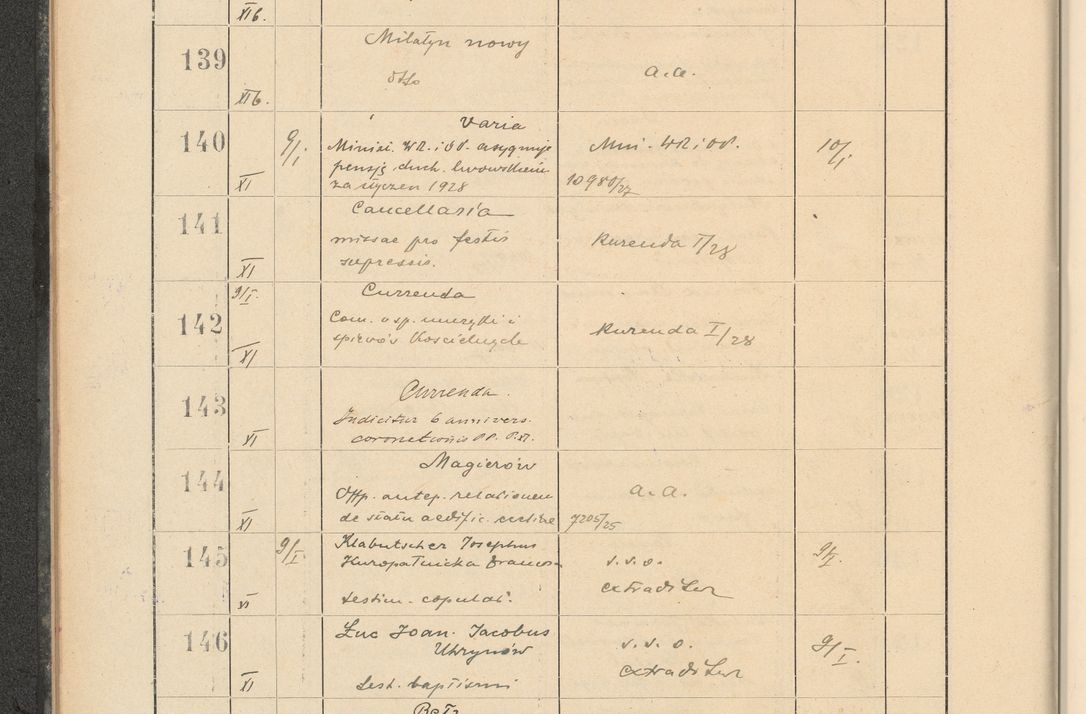 XI b.
139
Milatyn nowy
dtto
a. a.
XI b.
140
9/I
Varia
Minist. WR. i OP. asygnuje
pensję duch. lwowskiem
za styczeń 1928
XI
Min. WR i OP.
10980/27
10/I
141
Cancellaria
missae pro festis
supressis.
XI
Kurenda I/28
142
9/I.
Currenda
Com. osp. muzyki i
śpiewów Kościelnych
XI
Kurenda I/28
143
Currenda.
Indicitur 6 annivers.
coronationis PP. P. XI.
XI
144
Magierów
Off. antep. relationem
de statu aedific. eccliae
XI
a. a.
7205/25
145
9/I.
Klabutscher Josephus
Kuropatnicka Francisca
testim. copulat.
XI
s. s. o.
extraditur
9/I.
146
Łuc Joan. Jacobus
Uhrynów
test. baptismi
XI
s. s. o.
extraditur
9/I.